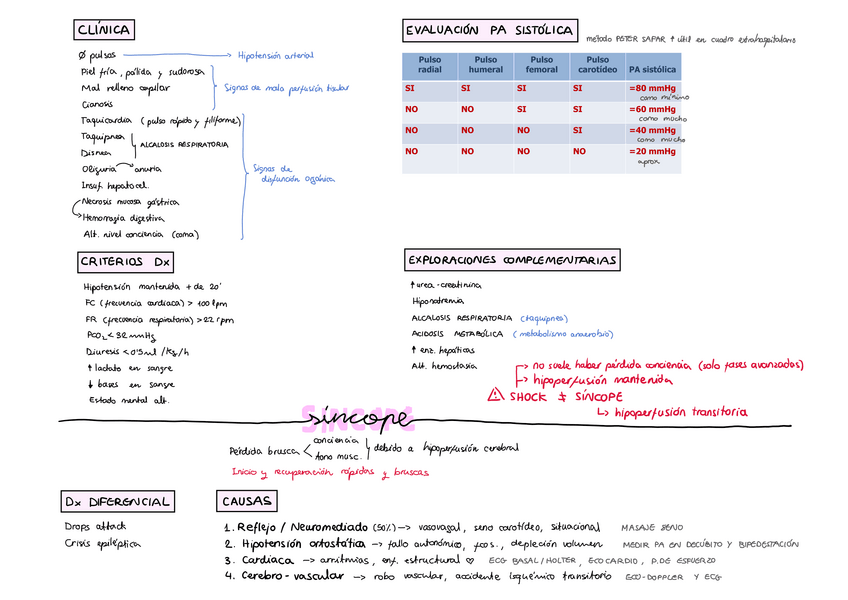 CLÍNICA
Ø pulsos → Hipotensión arterial
Piel fría, pálida y sudorosa
Mal relleno capilar
Cianosis
Signos de mala perfusión tisular
Taquicardia (pulso rápido y filiforme)
Taquipnea
Disnea
ALCALOSIS RESPIRATORIA
Oliguria → anuria
Insuf. hepatocel.
Necrosis mucosa gástrica
Hemorragia digestiva
Alt. nivel conciencia (coma)
Signos de
disfunción orgánica
EVALUACIÓN PA SISTÓLICA
método PETER SAFAR ↑ útil en cuadro extrahospitalario
Pulso radial Pulso humeral Pulso femoral Pulso carotídeo PA sistólica
SI SI SI SI =80 mmHg
como mínimo
NO NO SI SI =60 mmHg
como mucho
NO NO NO SI =40 mmHg
como mucho
NO NO NO NO =20 mmHg
aprox
CRITERIOS Dx
Hipotensión mantenida + de 20'
FC (frecuencia cardiaca) > 100 lpm
FR (frecuencia respiratoria) > 22 rpm
PCO2 < 32 mmHg
Diuresis < 0'5 ml /kg/h
↑ lactato en sangre
↓ bases en sangre
Estado mental alt.
EXPLORACIONES COMPLEMENTARIAS
↑ urea-creatinina
Hiponatremia
ALCALOSIS RESPIRATORIA (taquipnea)
ACIDOSIS METABÓLICA (metabolismo anaerobio)
↑ enz. hepáticas
Alt. hemostasia
no suele haber pérdida conciencia (solo fases avanzadas)
hipoperfusión mantenida
⚠ SHOCK ≠ SÍNCOPE
hipoperfusión transitoria
SÍNCOPE
síncope
Pérdida brusca < conciencia
tono musc. } debido a hipoperfusión cerebral
Inicio y recuperación rápidas y bruscas
Dx DIFERENCIAL
Drops attack
Crisis epiléptica
CAUSAS
1. Reflejo / Neuromediado (50%) → vasovagal, seno carotídeo, situacional MASAJE SENO
2. Hipotensión ortostática → fallo autonómico, fcos., depleción volumen MEDIR PA EN DECÚBITO Y BIPEDESTACIÓN
3. Cardiaca → arritmias, enf. estructural ♡ ECG BASAL/HOLTER, ECOCARDIO, P.DE ESFUERZO
4. Cerebro-vascular → robo vascular, accidente isquémico transitorio ECO-DOPPLER Y ECG